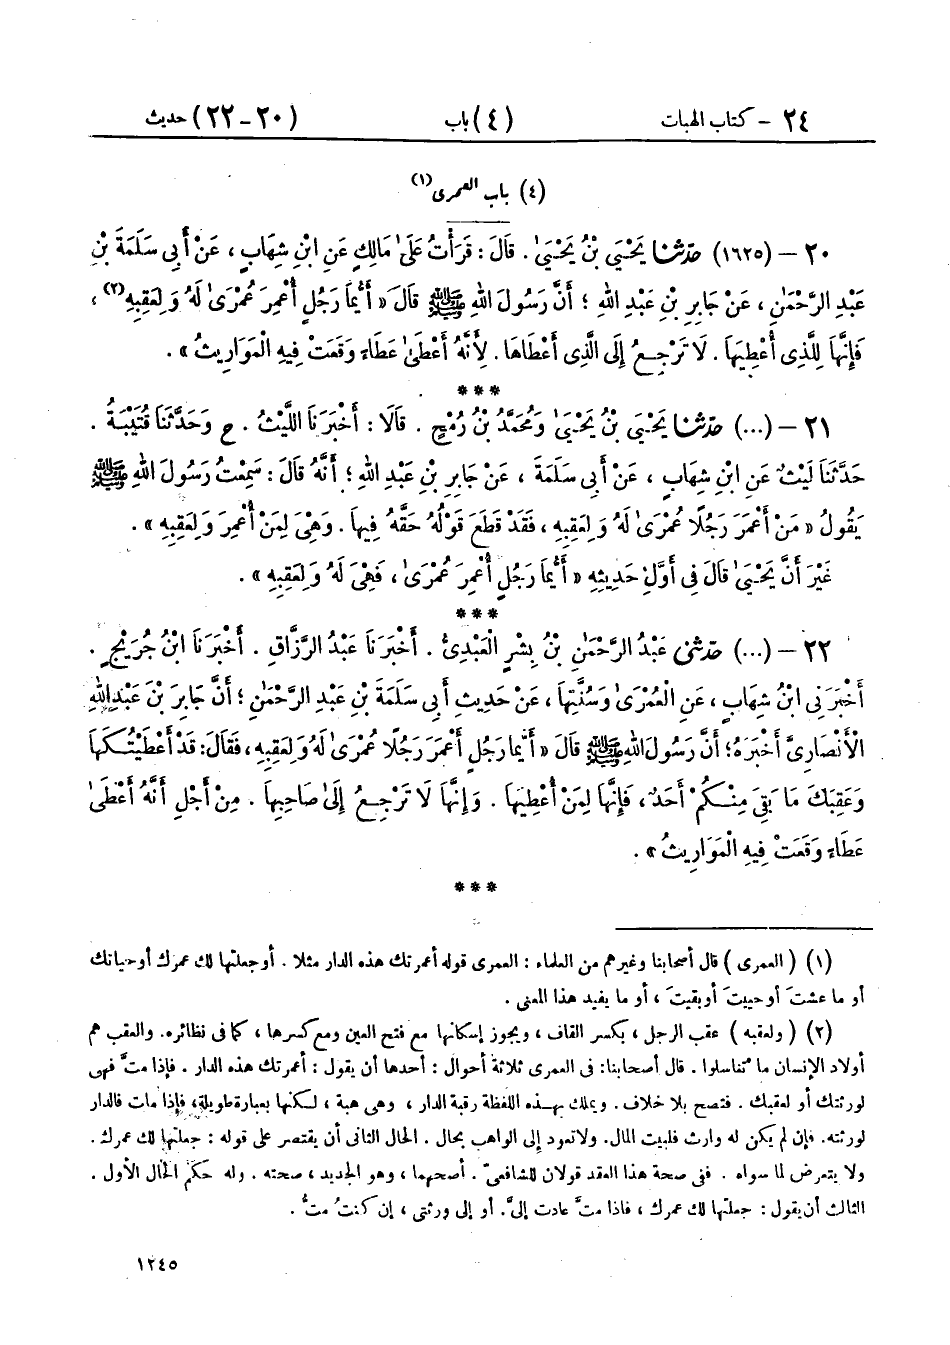 ٢٤ - كتاب الهبات (٤) باب (٢٠-٢٢) حديث
(٤) باب العمرى(١)
٢٠ – (١٦٢٥) حَدَّثَنَا يَحْيَىٰ بْنُ يَحْيَىٰ . قَالَ : قَرَأْتُ عَلَىٰ مَالِكٍ عَنِ ابْنِ شِهَابٍ ، عَنْ أَبِي سَلَمَةَ بْنِ
عَبْدِ الرَّحْمَٰنِ ، عَنْ جَابِرِ بْنِ عَبْدِ اللهِ ؛ أَنَّ رَسُولَ اللهِ ﷺ قَالَ « أَيُّمَا رَجُلٍ أُعْمِرَ عُمْرَىٰ لَهُ وَلِعَقِبِهِ(٢) ،
فَإِنَّهَا لِلَّذِي أُعْطِيَهَا . لَا تَرْجِعُ إِلَى الَّذِي أَعْطَاهَا . لِأَنَّهُ أَعْطَىٰ عَطَاءً وَقَعَتْ فِيهِ الْمَوَارِيثُ » .
***
٢١ – (...) حَدَّثَنَا يَحْيَىٰ بْنُ يَحْيَىٰ وَمُحَمَّدُ بْنُ رُمْحٍ . قَالَا : أَخْبَرَنَا اللَّيْثُ . ح وَحَدَّثَنَا قُتَيْبَةُ .
حَدَّثَنَا لَيْثٌ عَنِ ابْنِ شِهَابٍ ، عَنْ أَبِي سَلَمَةَ ، عَنْ جَابِرِ بْنِ عَبْدِ اللهِ ؛ أَنَّهُ قَالَ : سَمِعْتُ رَسُولَ اللهِ ﷺ
يَقُولُ « مَنْ أَعْمَرَ رَجُلًا عُمْرَىٰ لَهُ وَلِعَقِبِهِ ، فَقَدْ قَطَعَ قَوْلُهُ حَقَّهُ فِيهَا . وَهِيَ لِمَنْ أُعْمِرَ وَلِعَقِبِهِ » .
غَيْرَ أَنَّ يَحْيَىٰ قَالَ فِي أَوَّلِ حَدِيثِهِ « أَيُّمَا رَجُلٍ أُعْمِرَ عُمْرَىٰ ، فَهِيَ لَهُ وَلِعَقِبِهِ » .
***
٢٢ – (...) حَدَّثَنِي عَبْدُ الرَّحْمَٰنِ بْنُ بِشْرٍ الْعَبْدِيُّ . أَخْبَرَنَا عَبْدُ الرَّزَّاقِ . أَخْبَرَنَا ابْنُ جُرَيْجٍ .
أَخْبَرَنِي ابْنُ شِهَابٍ ، عَنِ الْعُمْرَىٰ وَسُنَّتِهَا ، عَنْ حَدِيثِ أَبِي سَلَمَةَ بْنِ عَبْدِ الرَّحْمَٰنِ ؛ أَنَّ جَابِرَ بْنَ عَبْدِ اللهِ
الْأَنْصَارِيَّ أَخْبَرَهُ ؛ أَنَّ رَسُولَ اللهِ ﷺ قَالَ « أَيُّمَا رَجُلٍ أَعْمَرَ رَجُلًا عُمْرَىٰ لَهُ وَلِعَقِبِهِ ، فَقَالَ : قَدْ أَعْطَيْتُكَهَا
وَعَقِبَكَ مَا بَقِيَ مِنْكُمْ أَحَدٌ ، فَإِنَّهَا لِمَنْ أُعْطِيَهَا . وَإِنَّهَا لَا تَرْجِعُ إِلَىٰ صَاحِبِهَا . مِنْ أَجْلِ أَنَّهُ أَعْطَىٰ
عَطَاءً وَقَعَتْ فِيهِ الْمَوَارِيثُ » .
***
(١) ( العمرى ) قال أصحابنا وغيرهم من العلماء : العمرى قوله أعمرتك هذه الدار مثلا . أو جعلتها لك عمرك أو حياتك
أو ما عشتَ أو حييتَ أو بقيتَ ، أو ما يفيد هذا المعنى .
(٢) ( ولعقبه ) عقب الرجل ، بكسر القاف ، ويجوز إسكانها مع فتح العين ومع كسرها ، كما في نظائره . والعقب هم
أولاد الإنسان ما تناسلوا . قال أصحابنا : في العمرى ثلاثة أحوال : أحدها أن يقول : أعمرتك هذه الدار . فإذا متَّ فهى
لورثتك أو لعقبك . فتصح بلا خلاف . ويملك بهذه اللفظة رقبة الدار ، وهى هبة ، لكنها بعبارة طويلة ، فإذا مات فالدار
لورثته . فإن لم يكن له وارث فلبيت المال . ولا تعود إلى الواهب بحال . الحال الثانى أن يقتصر على قوله : جعلتها لك عمرك .
ولا يتعرض لما سواه . ففى صحة هذا العقد قولان للشافعىّ . أصحهما ، وهو الجديد ، صحته . وله حكم الحال الأول .
الثالث أن يقول : جعلتها لك عمرك ، فإذا متَّ عادت إلىَّ . أو إلى ورثتى ، إن كنتُ متُّ .
١٢٤٥